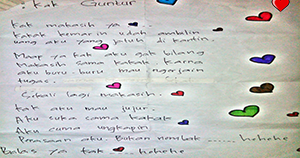 : Kak Guntur
Kak makasih ya
kakak kemarin udah ambilin
uang aku yang jatuh di kantin.
Maap ya kak aku gak bilang
Makasih sama kakak. karna
aku buru. buru mau ngerjain
tugas.
Sekali lagi makasih.
Kak aku mau jujur.
Aku suka sama kakak
Aku cuma ungkapin
Perasaan aku. Bukan nembak ...... hehehe
Balas ya kak hehehe